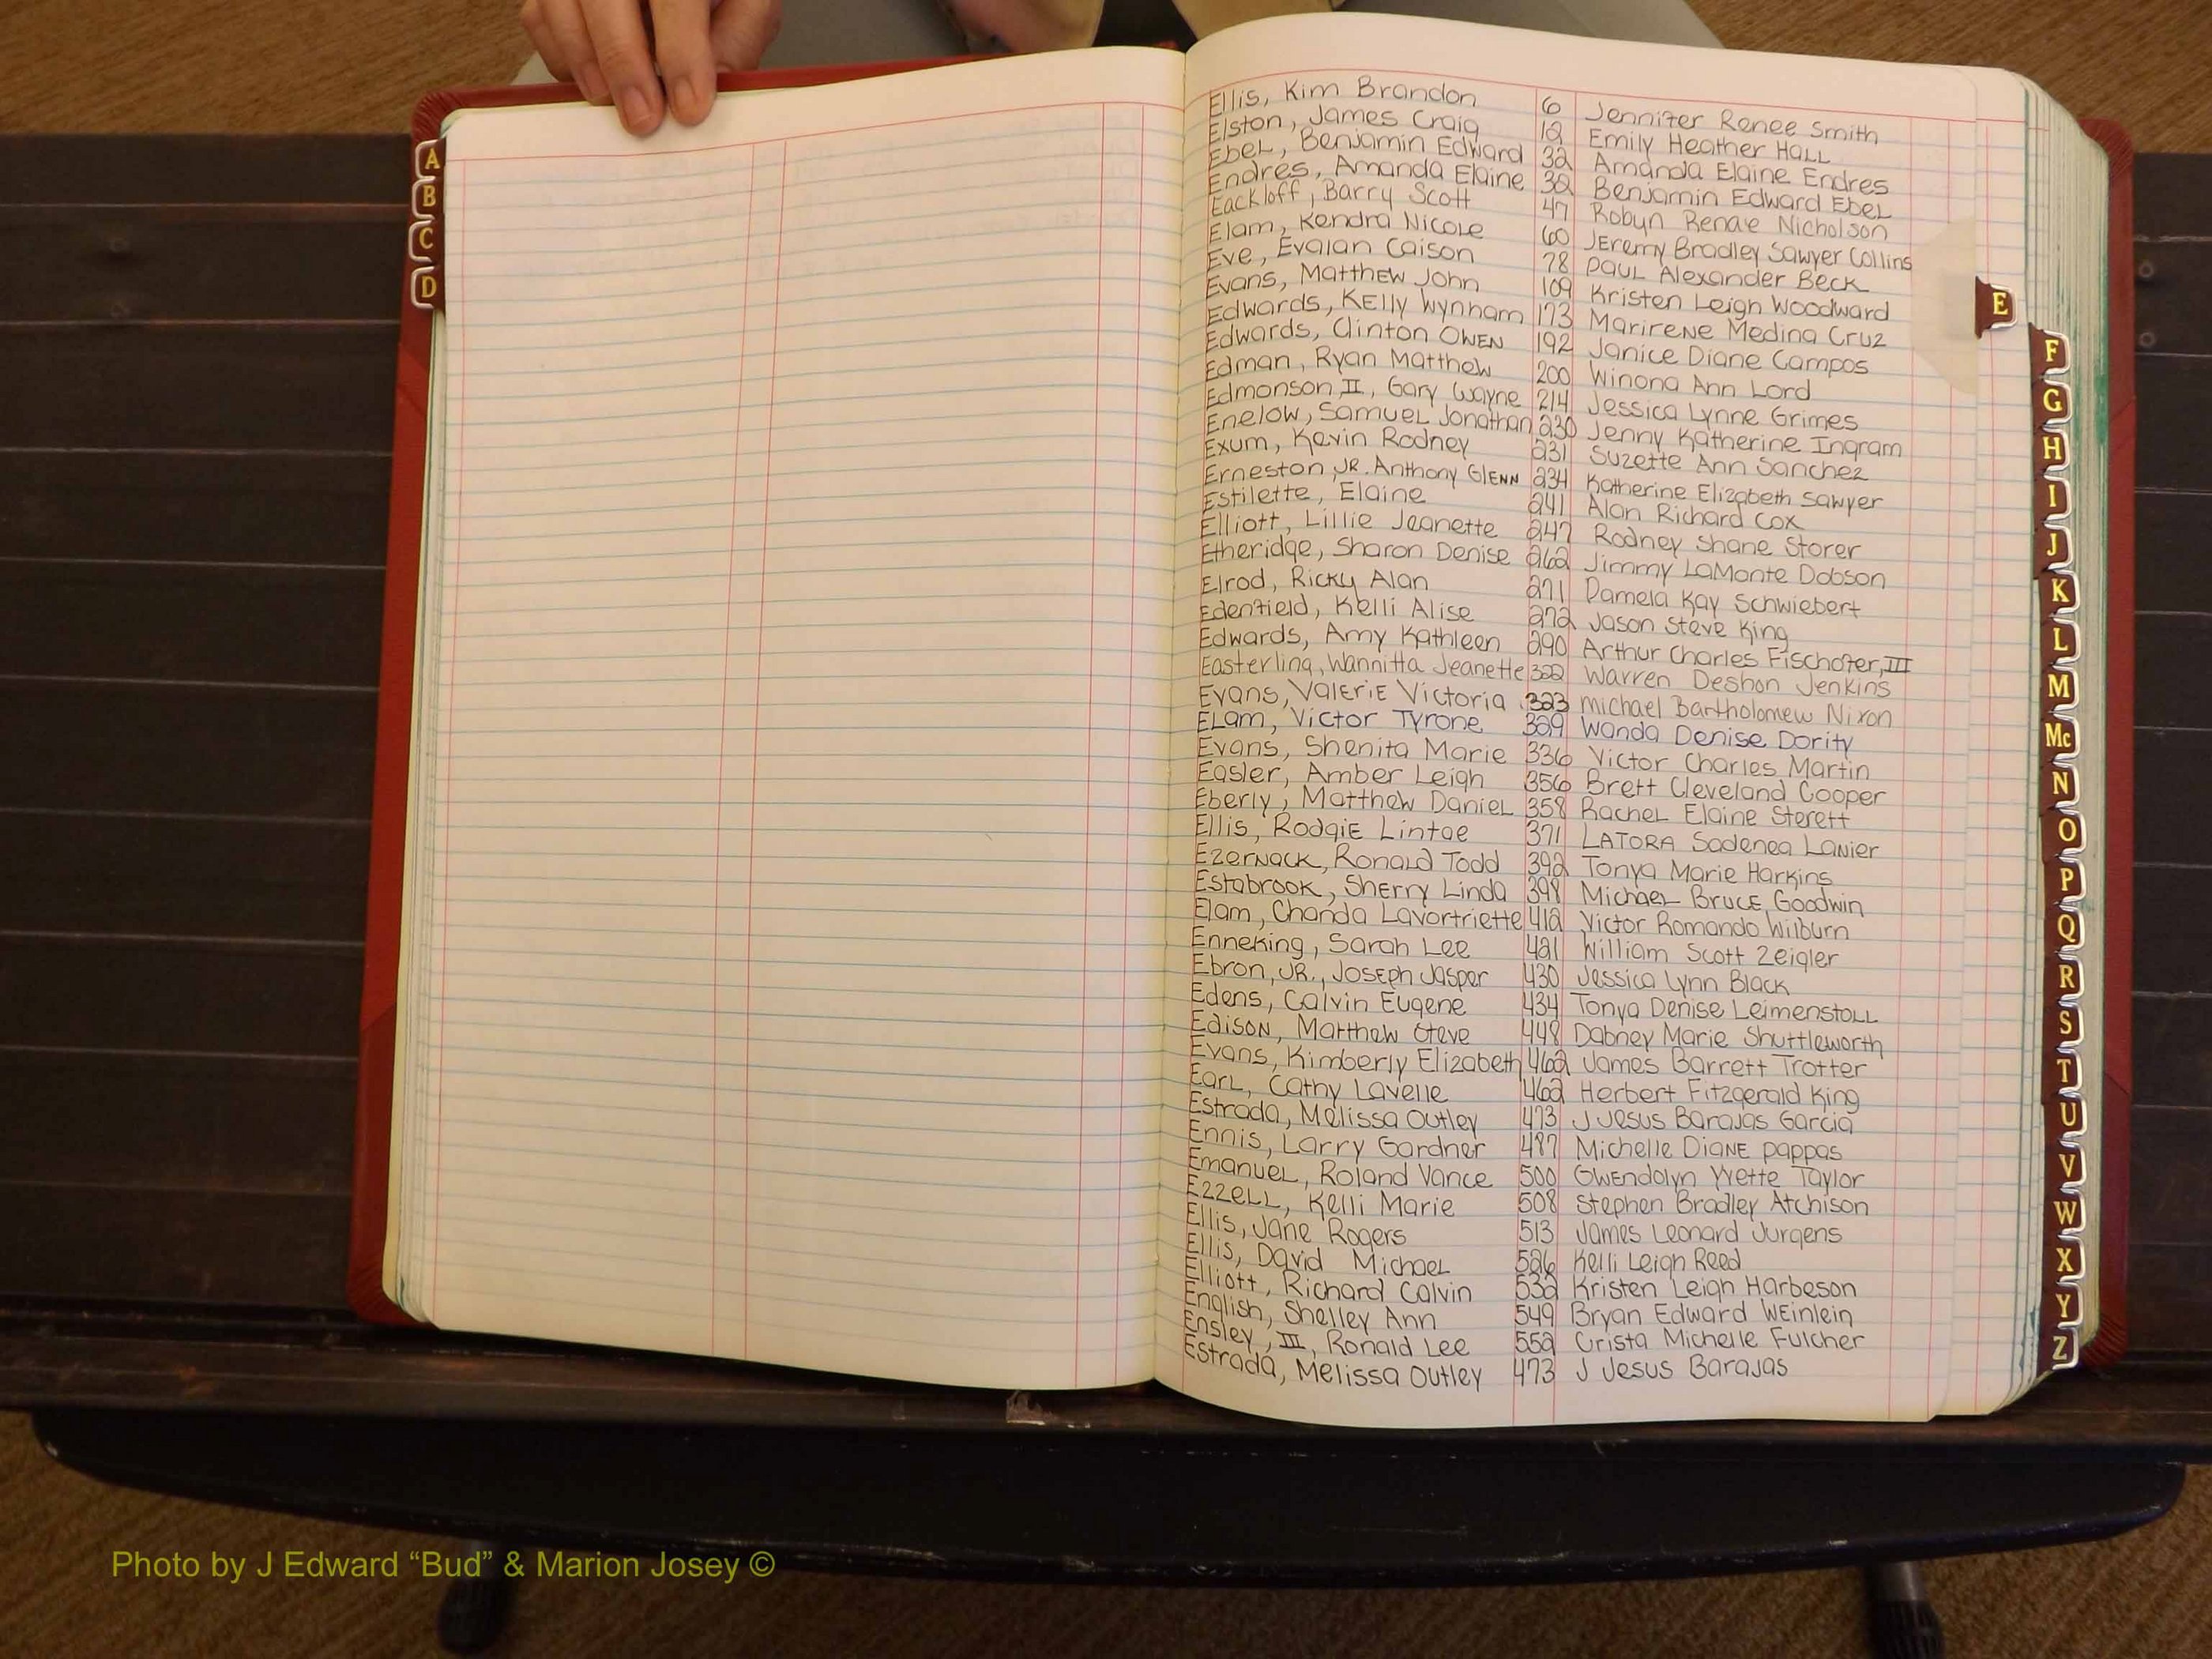 A
B
C
D
Ellis, Kim Brandon 6 Jennifer Renee Smith
Elston, James Craig 12 Emily Heather Hall
Ebel, Benjamin Edward 32 Amanda Elaine Endres
Endres, Amanda Elaine 32 Benjamin Edward Ebel
Eackloff, Barry Scott 47 Robyn Renae Nicholson
Elam, Kendra Nicole 60 Jeremy Bradley Sawyer Collins
Eve, Evalan Caison 78 Paul Alexander Beck
Evans, Matthew John 109 Kristen Leigh Woodward
Edwards, Kelly Wynham 173 Marirene Medina Cruz
Edwards, Clinton Owen 192 Janice Diane Campos
Edman, Ryan Matthew 200 Winona Ann Lord
Edmonson II, Gary Wayne 214 Jessica Lynne Grimes
Enelow, Samuel Jonathan 230 Jenny Katherine Ingram
Exum, Kevin Rodney 231 Suzette Ann Sanchez
Erneston, JR. Anthony Glenn 234 Katherine Elizabeth Sawyer
Estilette, Elaine 241 Alan Richard Cox
Elliott, Lillie Jeanette 247 Rodney Shane Storer
Etheridge, Sharon Denise 262 Jimmy LaMonte Dobson
Elrod, Ricky Alan 271 Pamela Kay Schwiebert
Edenfield, Kelli Alise 272 Jason Steve King
Edwards, Amy Kathleen 290 Arthur Charles Fischofer, III
Easterling, Wannitta Jeanette 322 Warren Deshon Jenkins
Evans, Valerie Victoria 323 Michael Bartholomew Nixon
Elam, Victor Tyrone 329 Wanda Denise Dority
Evans, Shenita Marie 336 Victor Charles Martin
Easler, Amber Leigh 356 Brett Cleveland Cooper
Eberly, Matthew Daniel 358 Rachel Elaine Sterett
Ellis, Rodgie Lintae 371 LaTora Sadenea Lanier
Ezernack, Ronald Todd 392 Tonya Marie Harkins
Estabrook, Sherry Linda 398 Michael Bruce Goodwin
Elam, Chanda Lavortriette 412 Victor Romando Wilburn
Enneking, Sarah Lee 421 William Scott Zeigler
Ebron, JR., Joseph Jasper 430 Jessica Lynn Black
Edens, Calvin Eugene 434 Tonya Denise Leimenstoll
Edison, Matthew Steve 448 Dabney Marie Shuttleworth
Evans, Kimberly Elizabeth 462 James Barrett Trotter
Earl, Cathy Lavelle 462 Herbert Fitzgerald King
Estrada, Melissa Outley 473 J Jesus Barajas Garcia
Ennis, Larry Gardner 487 Michelle Diane Pappas
Emanuel, Roland Vance 500 Gwendolyn Yvette Taylor
Ezzell, Kelli Marie 508 Stephen Bradley Atchison
Ellis, Jane Rogers 513 James Leonard Jurgens
Ellis, David Michael 526 Kelli Leigh Reed
Elliott, Richard Calvin 532 Kristen Leigh Harbeson
English, Shelley Ann 549 Bryan Edward Weinlein
Ensley, III, Ronald Lee 552 Crista Michelle Fulcher
Estrada, Melissa Outley 473 J Jesus Barajas
E
F
G
H
I
J
K
L
M
Mc
N
O
P
Q
R
S
T
U
V
W
X
Y
Z
Photo by J Edward “Bud” & Marion Josey ©